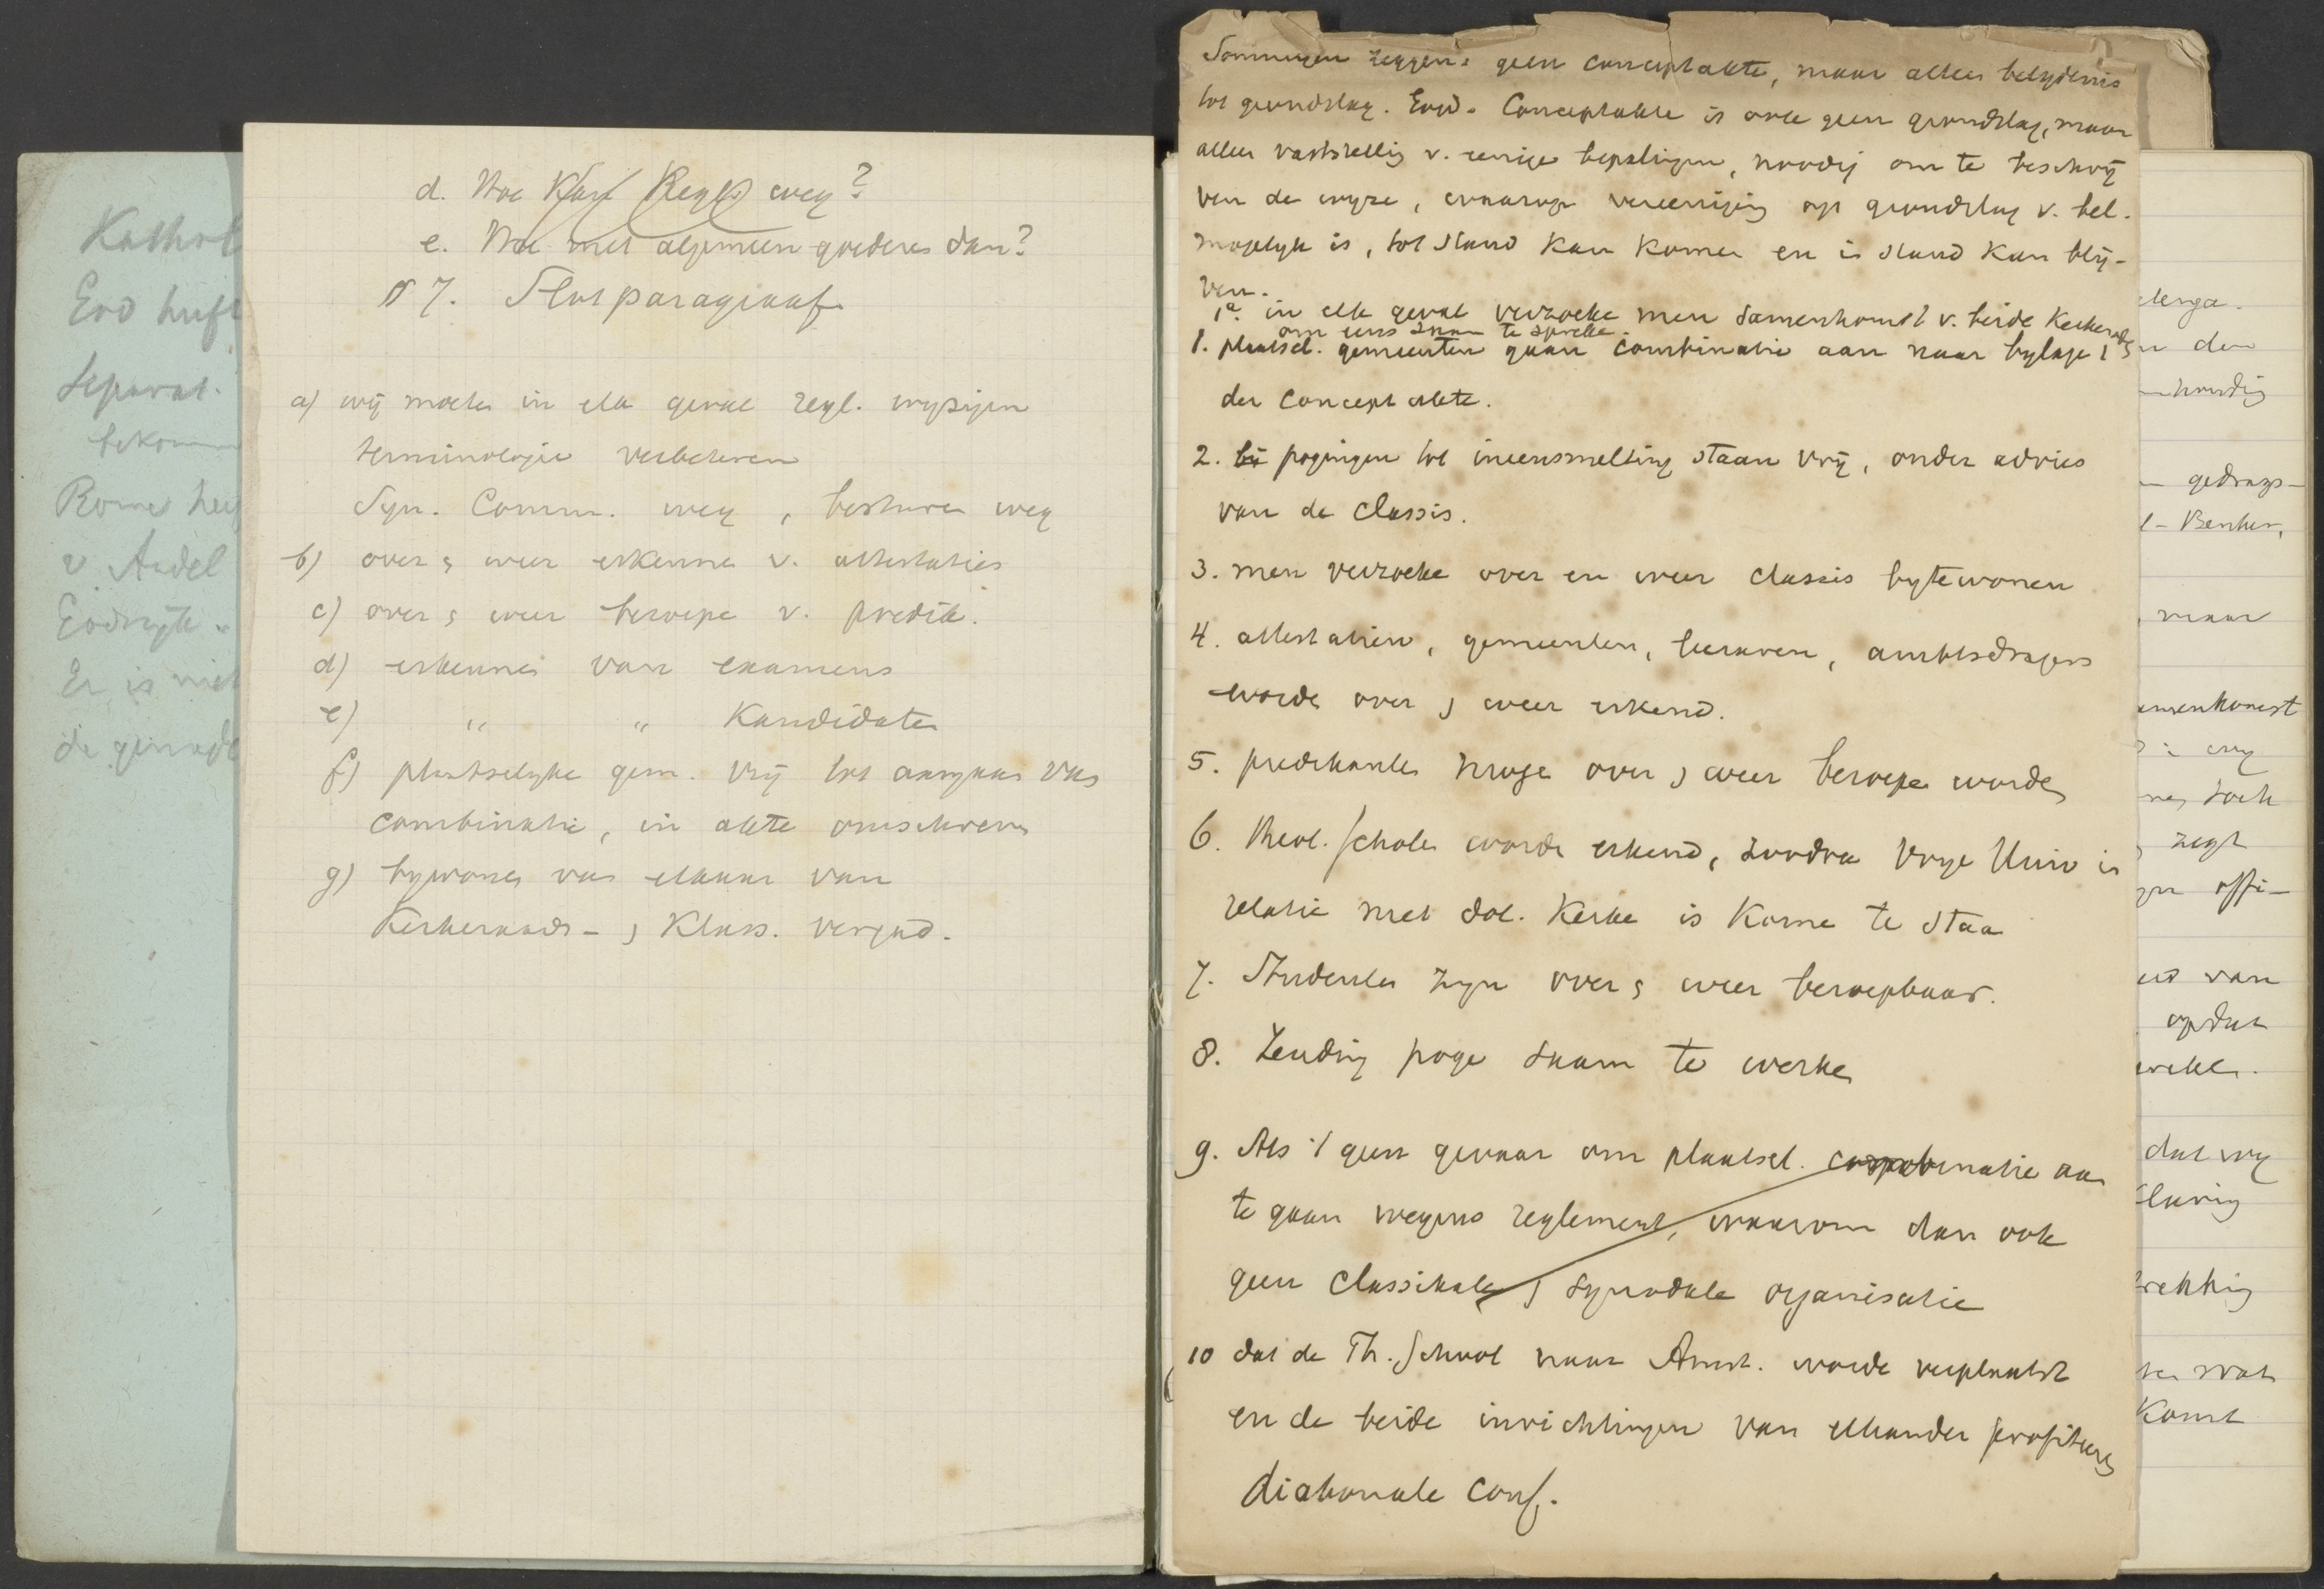 Kathol
End heeft
Separat.
bekomm
Rome heeft
v. Andel
Eindrijk.
Er is niet
de gemede
d. Hoe Kan Regl weg?
e. Hoe met algemeen goederen dan?
§ 7. Slotparagraaf
a) wij moeten in elk geval regl. wijzigen
terminologie verbeteren
Syn. Comm. weg, besturen weg
b) over & weer erkennen v. attestaties
c) over & weer beroepen v. predik.
d) erkennen van examens
e) " " Kandidaten
f) plaatselijke gem. vrij tot aangaan van
combinatie, in akte omschreven
g) bywonen van elkaar van
Kerkeraads- & Klass. vergad.
Sommigen zeggen: geen conceptakte, maar alleen belydenis
tot grondslag. Conceptakte is ook geen grondslag, maar
alleen vaststelling v. eenige bepalingen, noodig om te beschrij
ven de wyze, waarop vereeniging op grondslag v. bel.
mogelyk is, tot stand kan komen en in stand kan blij-
ven.
1a. in elk geval verzoeke men samenkomst v. beide Kerkeraden
om eens saam te spreken.
1. plaatsel. gemeenten gaan combinatie aan naar bylage 1
der Concept akte.
2. bij pogingen tot ineensmelting staan vrij, onder advies
van de classis.
3. men verzoeke over en weer classis bytewonen
4. attestatien, gemeenten, leeraren, ambtsdragers
worden over & weer erkend.
5. predikanten mogen over & weer beroepen worden
6. Theol. Scholen worden erkend, zoodra Vrye Univ in
relatie met dol. Kerken is komen te staan
7. Studenten zyn over & weer beroepbaar.
8. Zending poge saam te werken
9. Als 't geen gevaar om plaatsel. combinatie aan
te gaan wegens reglement, waarom dan ook
geen classikale & synodale organisatie
10 dat de Th. School naar Amst. worde verplaatst
en de beide inrichtingen van elkander profiteeren
diakonale conf.
elenga.
n den
houdig
gedrags-
l- Benker,
maar
amenkomst
wy
toch
zegt
offi-
van
opdat
dat wy
trekking
wat
komt